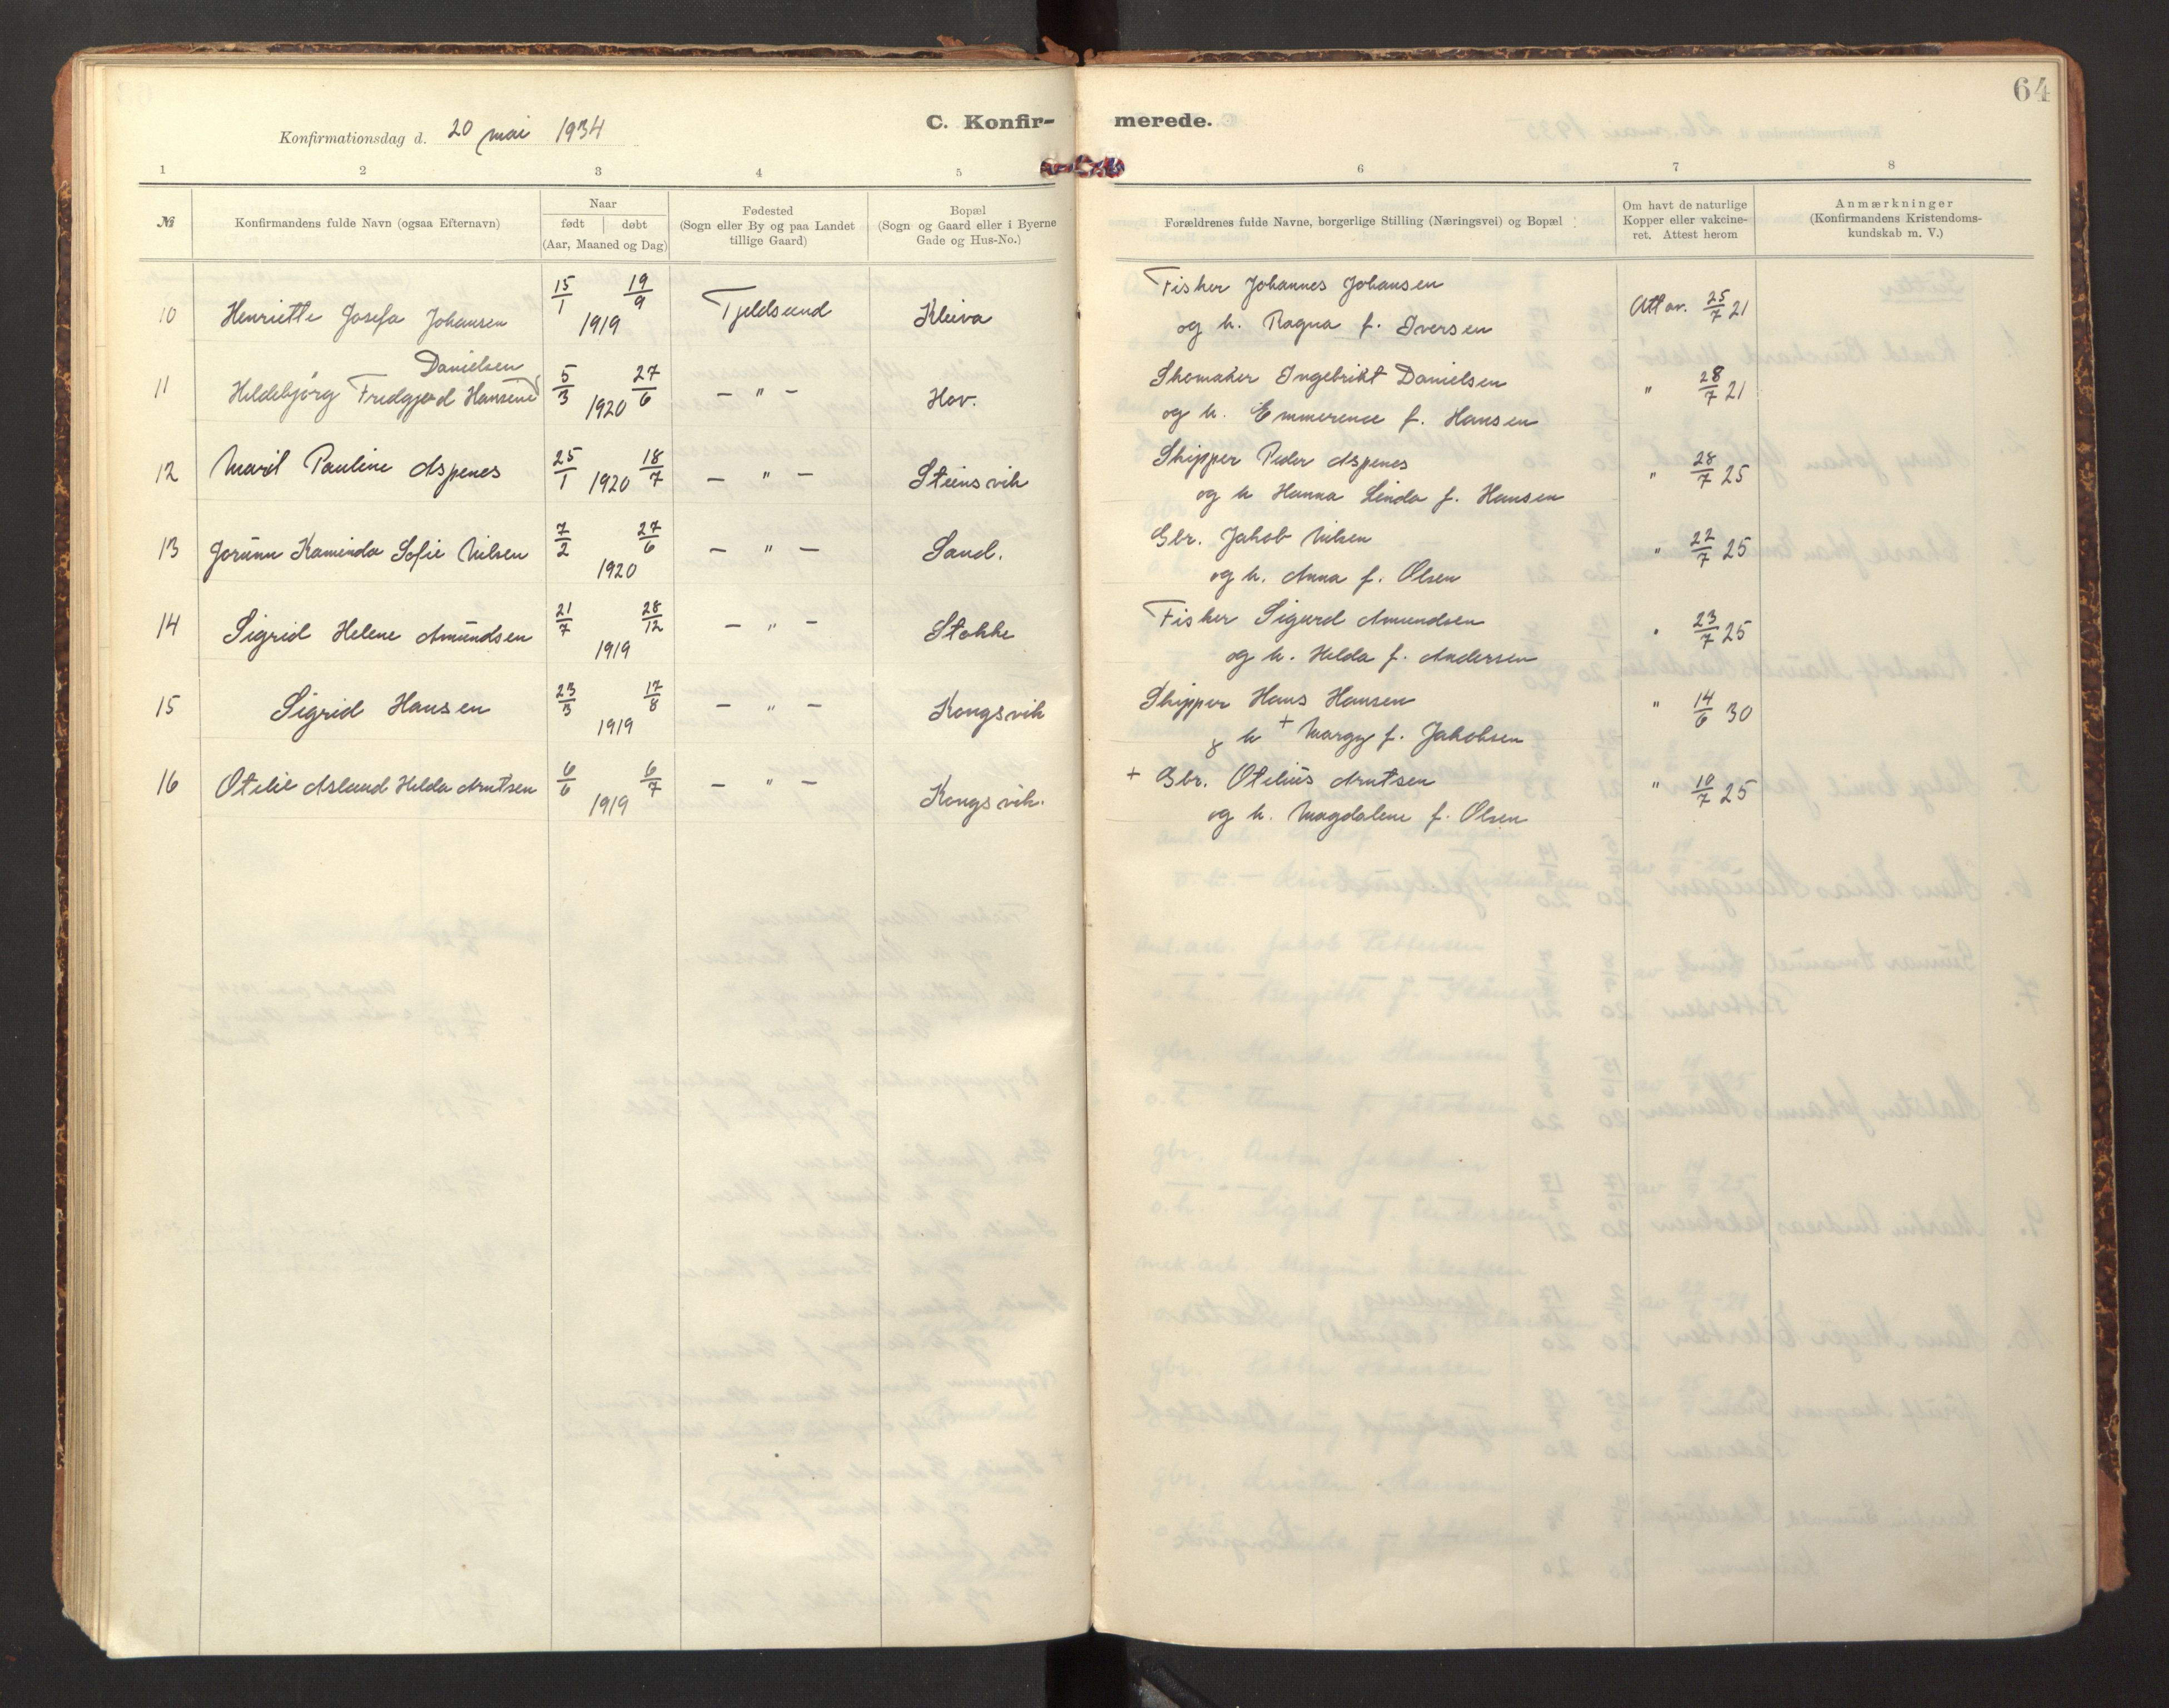 64
Konfirmationsdag d. 20 mai 1934
C. Konfir-
merede.
1 2 3 4 5 6 7 8
№
Konfirmandens fulde Navn (ogsaa Efternavn)
Naar
født | døbt
(Aar, Maaned og Dag)
Fødested
(Sogn eller By og paa Landet
tillige Gaard)
Bopæl
(Sogn og Gaard eller i Byerne
Gade og Hus-No.)
Forældrenes fulde Navne, borgerlige Stilling (Næringsvei) og Bopæl
Om havt de naturlige
Kopper eller vakcine-
ret. Attest herom
Anmærkninger
(Konfirmandens Kristendoms-
kundskab m. V.)
10 Henriette Josefa Johansen 15/1 19/9 1919 Tjeldsund Kleiva
Fisker Johannes Johansen
og h. Ragna f. Iversen
Att av. 25/7 21
Danielsen
11 Heldebjørg Fredgjerd Hansen 5/3 27/6 1920 – " – Hov.
Skomaker Ingebrikt Danielsen
og h. Emmerence f. Hansen
" 28/7 21
12 Marit Pauline Aspenes 25/1 18/7 1920 – " – Steinsvik
Skipper Peder Aspenes
og h Hanna Linda f. Hansen
" 28/7 25
13 Jorunn Kaminda Sofie Nilsen 7/2 27/6 1920 – " – Sand.
Gbr. Jakob Nilsen
og h. Anna f. Olsen
" 22/7 25
14 Sigrid Helene Amundsen 21/7 28/12 1919 – " – Stokke
Fisker Sigurd Amundsen
og h. Helda f. Andersen
" 23/7 25
15 Sigrid Hansen 23/3 17/8 1919 – " – Kongsvik
Skipper Hans Hansen
g h + Margy f. Jakobsen
" 14/6 30
16 Otelie Aslaud Helda Arntsen 6/6 6/7 1919 – " – Kongsvik.
+ Gbr. Otelius Arntsen
og h. Magdalene f. Olsen
" 10/7 25